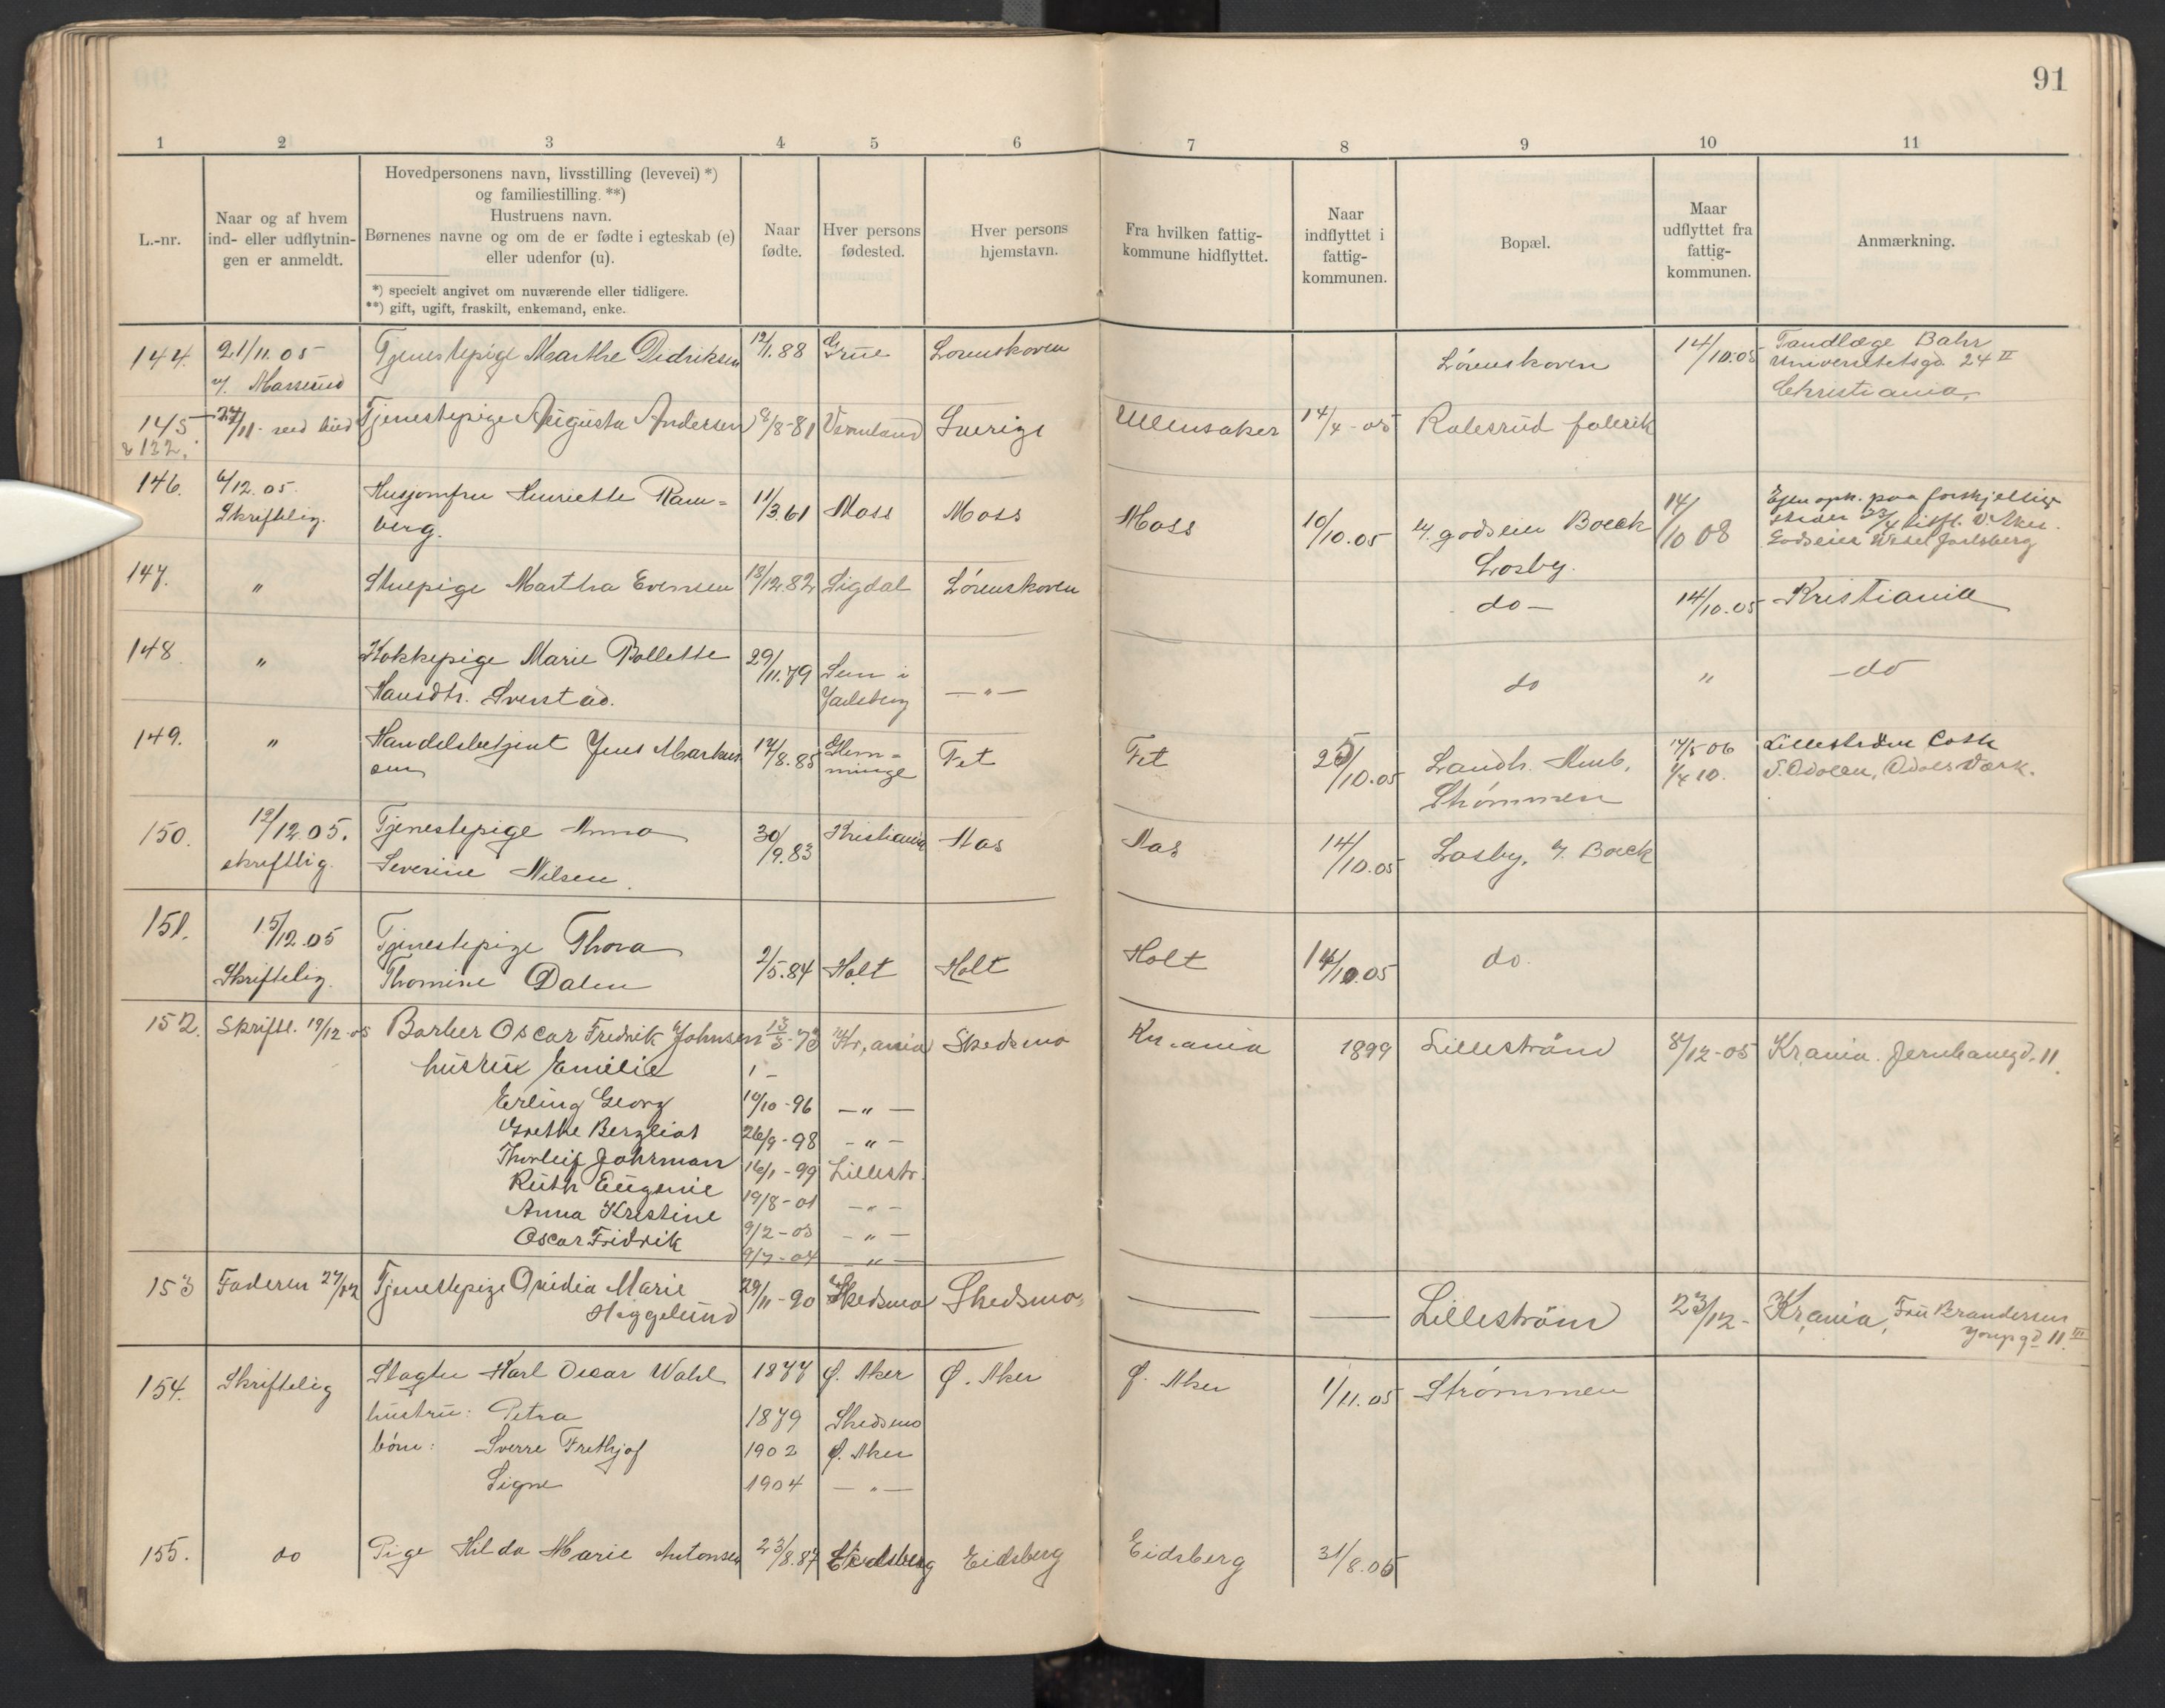 91
1 2 3 4 5 6 7 8 9 10 11
L.-nr.
Naar og af hvem
ind- eller udflytnin-
gen er anmeldt.
Hovedpersonens navn, livsstilling (levevei) *)
og familiestilling. **)
Hustruens navn.
Børnenes navne og om de er fødte i egteskab (e)
eller udenfor (u).
*) specielt angivet om nuværende eller tidligere.
**) gift, ugift, fraskilt, enkemand, enke.
Naar
fødte.
Hver persons
fødested.
Hver persons
hjemstavn.
Fra hvilken fattig-
kommune hidflyttet.
Naar
indflyttet i
fattig-
kommunen.
Bopæl.
Maar
udflyttet fra
fattig-
kommunen.
Anmærkning.
144. 21/11.05 Tjenestepige Marthe Didriksen 12/1.88 Grue Lørenskoven Lørenskoven 14/10.05 Tandlæge Bahr
Universitetsgd. 24 II
Christiania.
145 27/11 Tjenestepige Augusta Andersen 8/8-81 Vermland Sverige Ullensaker 14/4-05 Ralesrud fabrik
& 132.
146. 6/12.05. Husjomfru Henriette Ram= 11/3.61 Moss Moss Moss 10/10.05 godseier Boeck 14/10 08 paa forskjellige
Skriftlig. berg. Losby.
147. " Stuepige Martha Evensen 18/12.82 Sigdal Lørenskoven do- 14/10.05 Kristiania
148 " Kokkepige Marie Bollette 29/11.79 Sem i -"- do " -do
Hansdtr. Sverstad. Jarlsberg
149. " Handelsbetjent Jens Markus 17/8.85 Glem= Fet Fet 25/10.05 Landh. 14/5 06 Lilleström
sen minge Strømmen 1/4 10.
150. 12/12 05. Tjenestepige Anna 30/9.83 Kristiania Aas Aas 14/10.05 Losby, Boeck
skriftlig. Severine Nilsen.
151. 15/12.05 Tjenestepige Thora
Skriftelig. Thomine Dalen 2/5.84 Holt Holt Holt 14/10.05 do.
152. Skriftl. 19/12-05 Barber Oscar Fredrik Johnsen 13/3-73 Kr,ania Skedsmo Kr.ania 1899 Lilleström 8/12-05 Krania. Jernbanegd. 11.
hustru Emilie
Erling Georg 10/10-96 -"-
Grethe Bergliot 26/9-98 -"-
Thorleif Johrman 16/1-99 Lillestr.
Ruth Eugenie 19/8-01 -"-
Anna Kristine 9/2-03 -"-
Oscar Fridrik 9/7-04 -"-
153 Faderen 27/12 Tjenestepige Ovidia Marie 29/11-90 Skedsmo Skedsmo Lilleström 23/12- Krania, Fru Brandersen
Heggelund 11 III
154. Skriftelig Slagter Karl Oscar Wahl 1877 Ø. Aker Ø. Aker Ø. Aker 1/11.05 Strømmen
hustru: Petra 1879 Skedsmo
børn: Sverre Frethjof 1902 Ø. Aker
Signe 1904 -"-
155. do Pige Hilda Marie Antonsen 23/8.87 Eidsberg Eidsberg Eidsberg 31/8.05